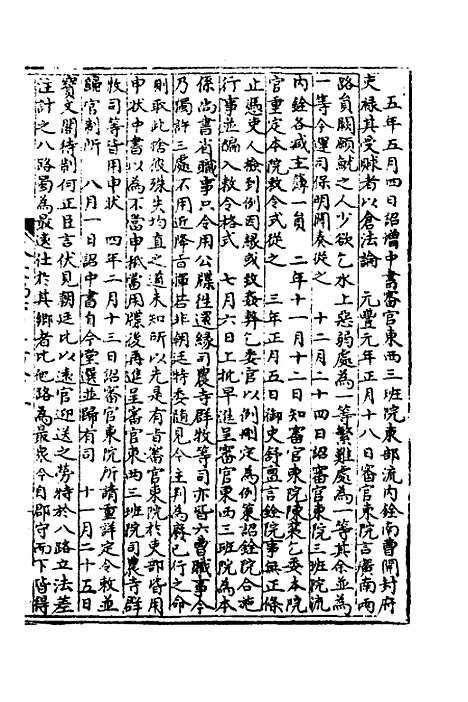 五年五月四日詔增中書審官東西三班院吏部流內銓南曹開封府
吏祿其受賕者以倉法論　元豐元年正月十八日審官東院言廣南兩
路員闕願就之人少欲乞水上惡弱處為一等繁難處為一等其余並為
一等令運司保明開奏從之　十二月二十四日詔審官東院三班院流
內銓各減主簿一員　二年十一月十二日知審官東院陳襄乞委本院
官重定本院敕令式從之　三年正月五日御史舒亶言銓院事無正條
止憑吏人檢到例因緣或致姦弊乞委官以例刪定為例策詔銓院合施
行事並編入敕令格式　七月六日上批早進呈審官東西三班院為本
係尚書省職事只令用公牒往還緣司農寺群牧等司亦皆六曹職事今
乃獨許三處不用近降旨揮若非朝廷特委隨見今主判為廢已行之命
則取此捨彼殊失均直之道未知所以先是有旨審官東院於吏部皆用
申狀中書以為不當申狀當用牒後再進呈審官東西三班院司農寺群
牧司等皆用申狀　四年二月十三日詔審官東院所請重詳定令敕並
歸官制所　八月一日詔中書自今堂選並歸有司　十一月二十五日
寶文閣待制何正臣言伏見朝廷比以遠官迎送之勞特於八路立法差
注計之八路蜀為最遠仕於其鄉者比他路為最眾今自郡守而下皆得